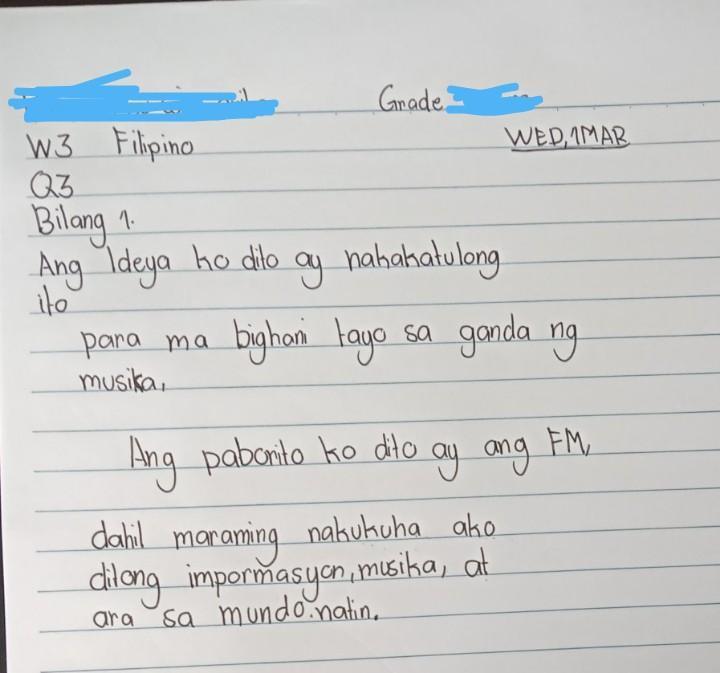 Grade
W3 Filipino
WED, 1MAR
Q3
Bilang 1.
Ang Ideya ko dito ay nakakatulong
ito
para ma bighani tayo sa ganda ng
musika,
Ang paborito ko dito ay ang FM,
dahil maraming nakukuha ako
ditong impormasyon, musika, at
ara sa mundo.natin.